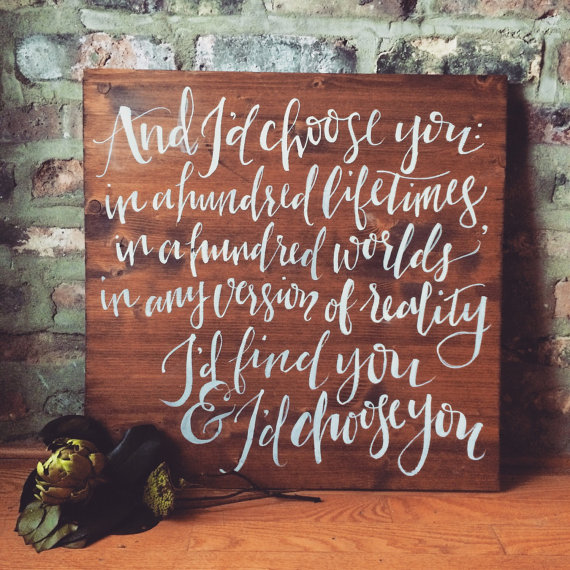 And I'd choose you:
in a hundred lifetimes,
in a hundred worlds
in any version of reality
I'd find you
& I'd choose you